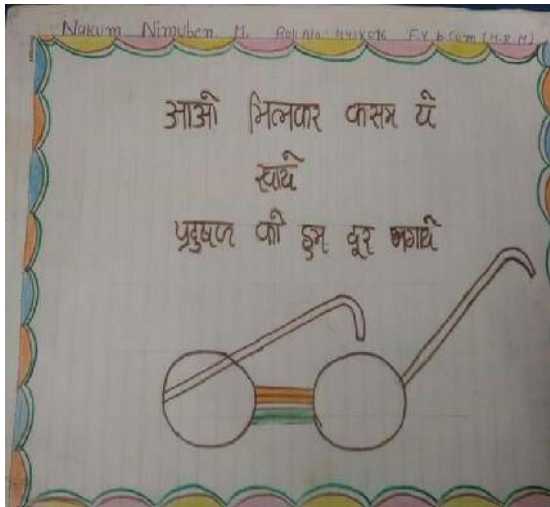 Nakum Nimuben M. Roll No: F.Y. B.Com (H.R.M)
आओ मिलकर कसम ये
खाये
प्रदुषण को हम दूर भगाये